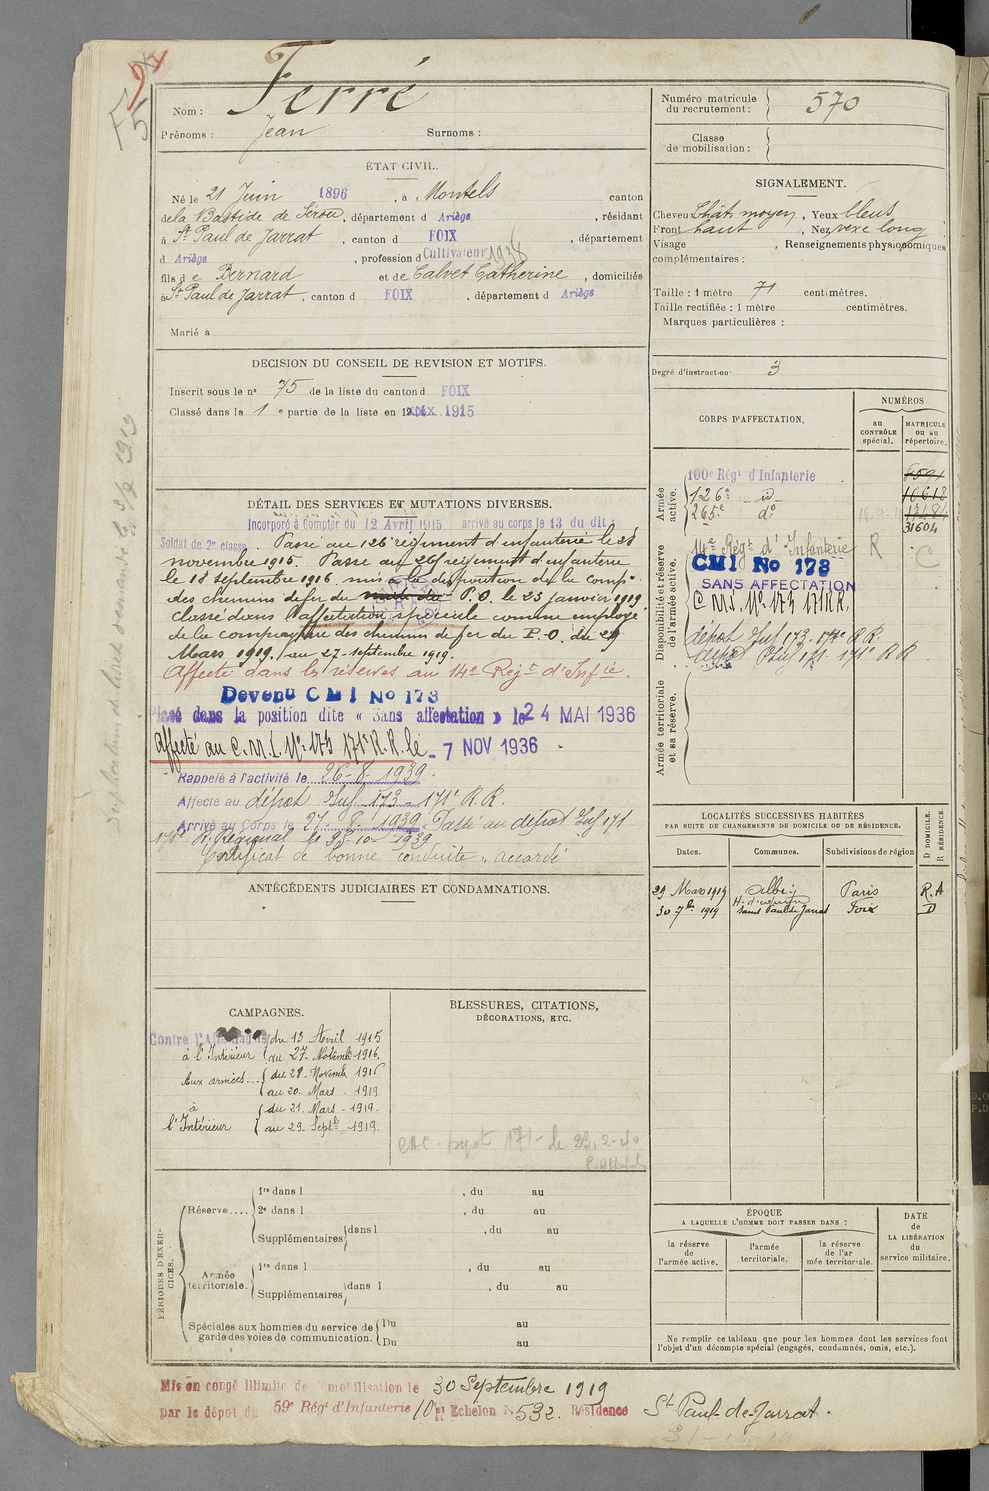 Nom : Ferré
Prénoms : Jean Surnoms :
Numéro matricule du recrutement : 570
Classe de mobilisation :
ÉTAT CIVIL.
Né le 21 Juin 1896, à Montels canton
de la Bastide de Sérou, département d Ariège, résidant
à St Paul de Jarrat, canton d FOIX, département
d Ariège, profession d Cultivateur 1938
fils d e Bernard et de Calvet Catherine, domiciliés
à St Paul de Jarrat, canton d FOIX, département d Ariège
Marié à
SIGNALEMENT.
Cheveu Chât moyen, Yeux bleus
Front haut, Nez vexe long
Visage , Renseignements physionomiques
complémentaires :
Taille : 1 mètre 71 centimètres.
Taille rectifiée : 1 mètre centimètres.
Marques particulières :
Degré d'instruction 3
DÉCISION DU CONSEIL DE REVISION ET MOTIFS.
Inscrit sous le n° 75 de la liste du canton d FOIX
Classé dans la 1e partie de la liste en 1915
DÉTAIL DES SERVICES ET MUTATIONS DIVERSES.
Incorporé à Compter du 12 Avril 1915 arrivé au corps le 13 du dit
Soldat de 2e classe. Passé au 126 régiment d'infanterie le 28
novembre 1916. Passé au 265 régiment d'infanterie
le 18 septembre 1916 mis à la disposition de la comp.
des chemins de fer du P.O. le 23 janvier 1919
classé dans l'affectation spéciale comme employé
de la compagnie des chemin de fer du P.O. du 29
Mars 1919 au 27 septembre 1919.
Affecté dans les réserves au 14e Régt d'Infie.
Devenu CMI No 173
Placé dans la position dite « Sans affectation » le 24 MAI 1936
Affecté au C.M.I. N° 173 171e R.R. le 7 NOV 1936
Rappelé à l'activité le 26-8-1939.
Affecté au dépôt Inf 173 - 171e R.R.
Arrivé au Corps le 27-8-1939. Passé au dépôt Inf 171
171e R. Régional le 28-10-1939
Certificat de bonne conduite "accordé"
CORPS D'AFFECTATION.
NUMÉROS
au CONTRÔLE spécial.
MATRICULE ou au répertoire.
Armée active.
100e Régt d'Infanterie
126e d
265e do
31604
Disponibilité et réserve de l'armée active.
14e Régt d'Infanterie R C
CMI No 173
SANS AFFECTATION
C.M.I. N° 173 171 R.R.
dépôt Inf 173 - 171e R.R.
dépôt Inf 171 - 171e R R
Armée territoriale et sa réserve.
LOCALITÉS SUCCESSIVES HABITÉES
PAR SUITE DE CHANGEMENTS DE DOMICILE OU DE RÉSIDENCE.
Dates. Communes. Subdivisions de région D DOMICILE. R RÉSIDENCE.
29 Mars 1919 Albi Paris R.A
30 7bre 1919 Saint Paul de Jarrat Foix D
ANTÉCÉDENTS JUDICIAIRES ET CONDAMNATIONS.
CAMPAGNES.
Contre l'Allemagne du 13 Avril 1915
à l'Intérieur au 27 Novemb 1916.
Aux armées du 28 Novemb 1916
au 20 Mars 1919
à du 21 Mars - 1919.
l'Intérieur au 29 Septbr 1919.
BLESSURES, CITATIONS, DÉCORATIONS, ETC.
PÉRIODES D'EXERCICES.
Réserve.... 1re dans l , du au
2e dans l , du au
Supplémentaires dans l , du au
Armée territoriale. 1re dans l , du au
Supplémentaires dans l , du au
Spéciales aux hommes du service de garde des voies de communication. Du au
Du au
ÉPOQUE
A LAQUELLE L'HOMME DOIT PASSER DANS :
la réserve de l'armée active.
l'armée territoriale.
la réserve de l'armée territoriale.
DATE de LA LIBÉRATION du service militaire.
Ne remplir ce tableau que pour les hommes dont les services font
l'objet d'un décompte spécial (engagés, condamnés, omis, etc.).
Mis en congé illimité de démobilisation le 30 Septembre 1919
par le dépôt du 59e Régt d'Infanterie 10e Echelon N° 532. Résidence St Paul-de-Jarrat.